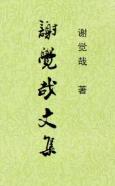 谢觉哉 著
謝覺哉文集